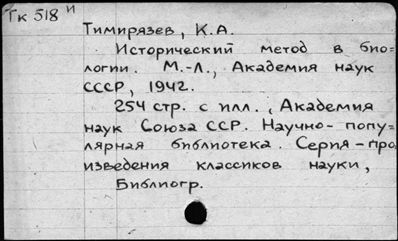 Тк 518 и
Тимирязев, К.А.
Исторический метод в био=
логии. М.-Л., Академия наук
СССР, 1942.
254 стр. с илл., Академия
наук Союза ССР. Научно-попу=
лярная библиотека. Серия-про
изведения классиков науки,
Библиогр.